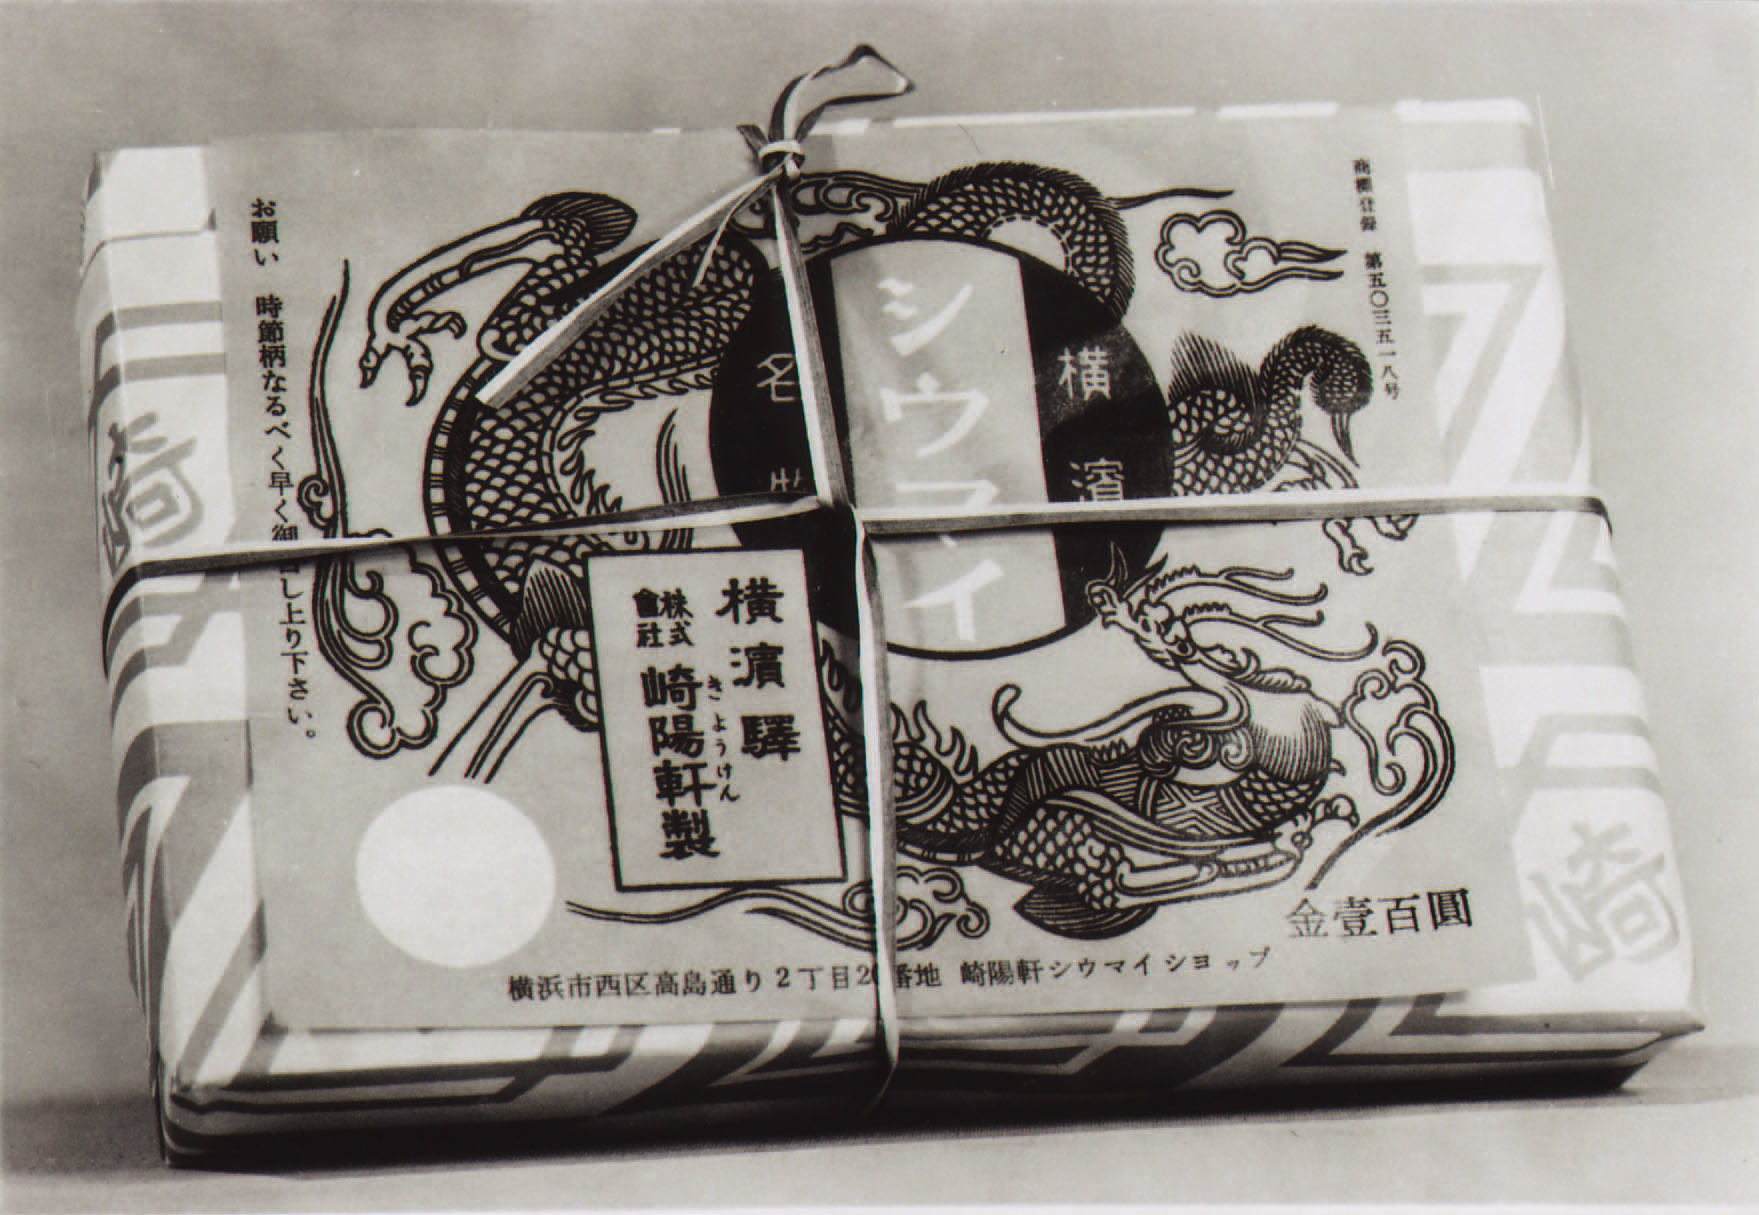 商標登録 第五〇三五一八号
シウマイ
横濱
名物
横濱驛
株式會社 崎陽軒製
きようけん
お願い 時節柄なるべく早く御召し上り下さい。
金壹百圓
横浜市西区高島通り2丁目20番地 崎陽軒シウマイショップ
崎
崎